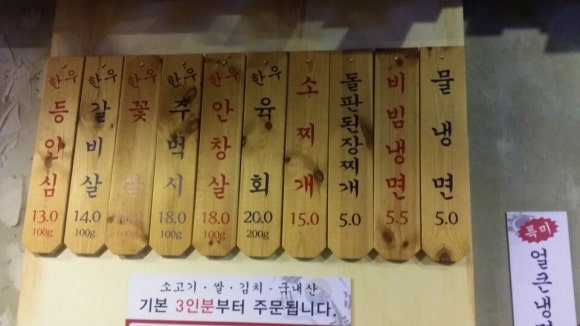 한우 등안심 13.0 100g
한우 갈비살 14.0 100g
한우 꽃살 100g
한우 주먹시 18.0 100g
한우 안창살 18.0 100g
한우 육회 20.0 200g
소찌개 15.0
돌판된장찌개 5.0
비빔냉면 5.5
물냉면 5.0
소고기·쌀·김치-국내산
기본 3인분부터 주문됩니다.
특미
얼큰냉